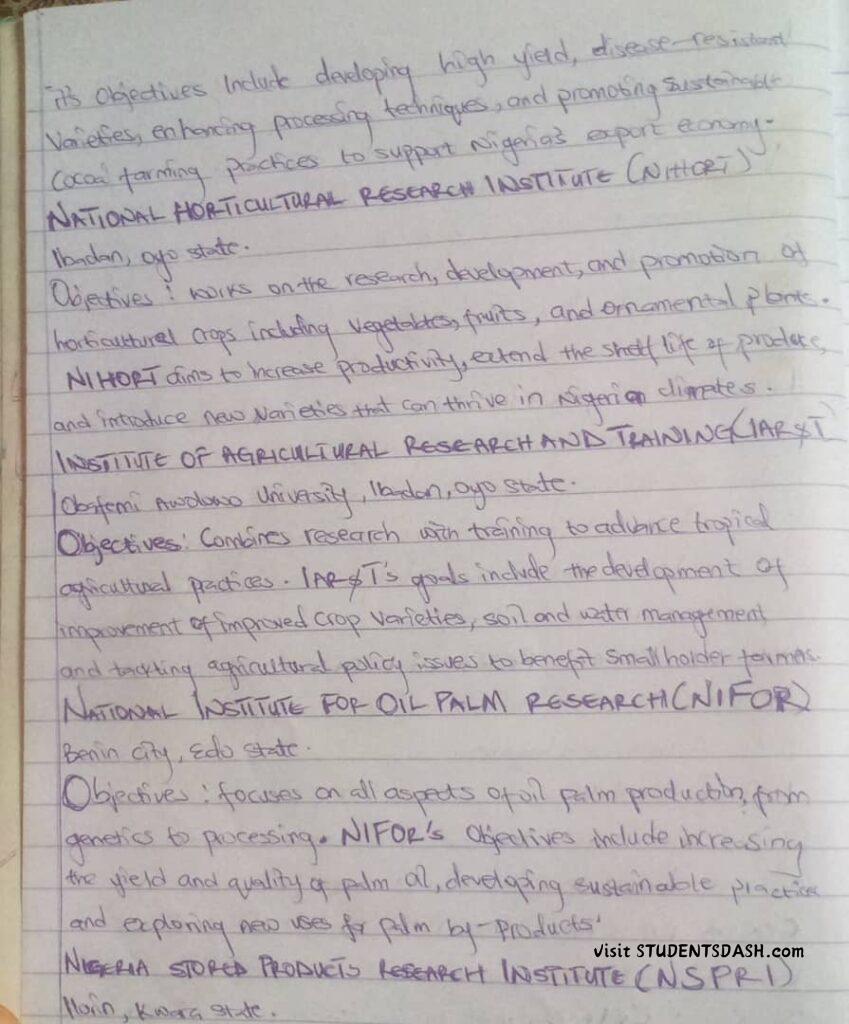 its Objectives Include developing high yield, disease-resistant
Varieties, enhancing processing techniques, and promoting sustainable
Cocoa farming practices to support Nigeria's export economy.
NATIONAL HORTICULTURAL RESEARCH INSTITUTE (NIHORT)
Ibadan, oyo state.
Objectives: works on the research, development, and promotion of
horticultural crops including vegetables, fruits, and ornamental plants.
NIHORT aims to increase productivity, extend the shelf life of produce,
and introduce new varieties that can thrive in Nigerian climates.
INSTITUTE OF AGRICULTURAL RESEARCH AND TRAINING (IAR&T
Obafemi Awolowo University, Ibadan, oyo state.
Objectives: Combines research with training to advance tropical
agricultural practices. IAR&T's goals include the development of
improvement of improved crop varieties, soil and water management
and tackling agricultural policy issues to benefit smallholder farmers.
NATIONAL INSTITUTE FOR OIL PALM RESEARCH (NIFOR)
Benin city, Edo state.
Objectives: focuses on all aspects of oil palm production, from
genetics to processing. NIFOR's Objectives include increasing
the yield and quality of palm oil, developing sustainable practice
and exploring new uses for palm by-products.
visit STUDENTSDASH.com
NIGERIA STORED PRODUCTS RESEARCH INSTITUTE (NSPRI)
Ilorin, Kwara state.